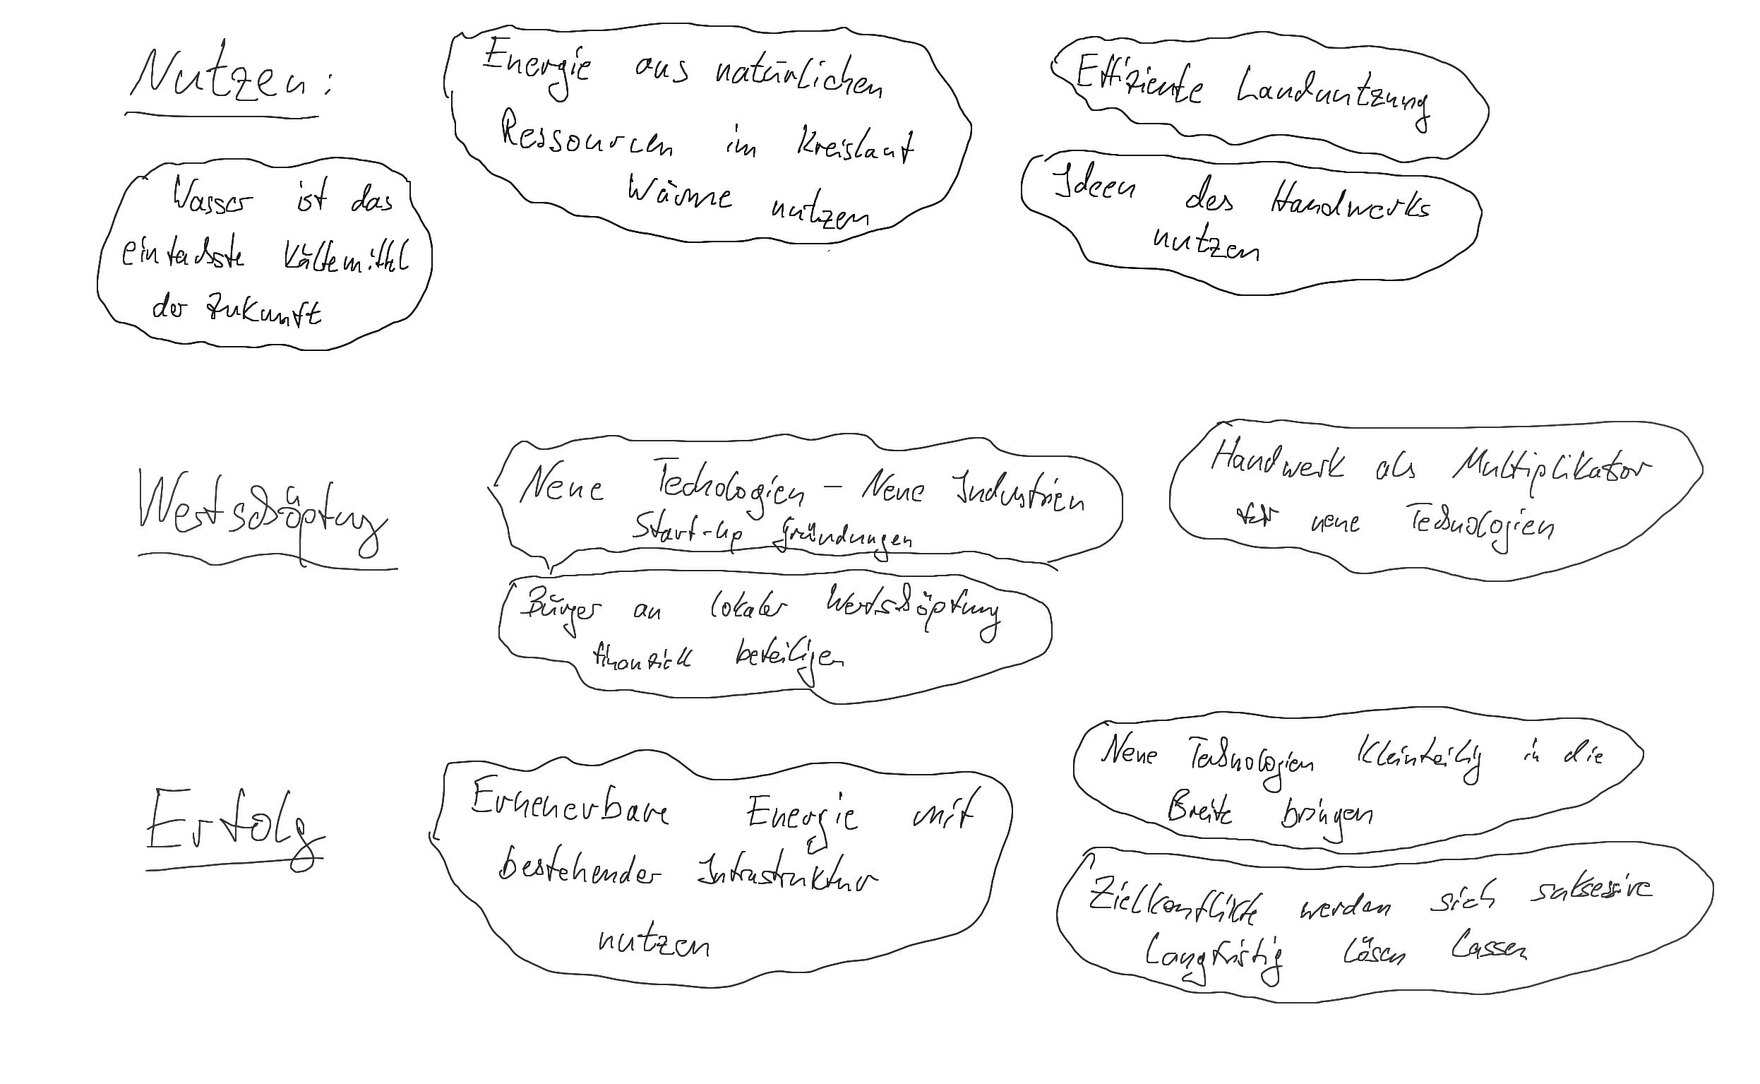 Nutzen:
Energie aus natürlichen
Ressourcen im Kreislauf
Wärme nutzen
Effiziente Landnutzung
Ideen des Handwerks
nutzen
Wasser ist das
einfachste Kältemittel
der Zukunft
Wertschöpfung
Neue Technologien – Neue Industrien
Start-up Gründungen
Handwerk als Multiplikator
für neue Technologien
Bürger an lokaler Wertschöpfung
finanziell beteiligen
Erfolg
Erneuerbare Energie mit
bestehender Infrastruktur
nutzen
Neue Technologien kleinteilig in die
Breite bringen
Zielkonflikte werden sich suksessive
langfristig lösen lassen